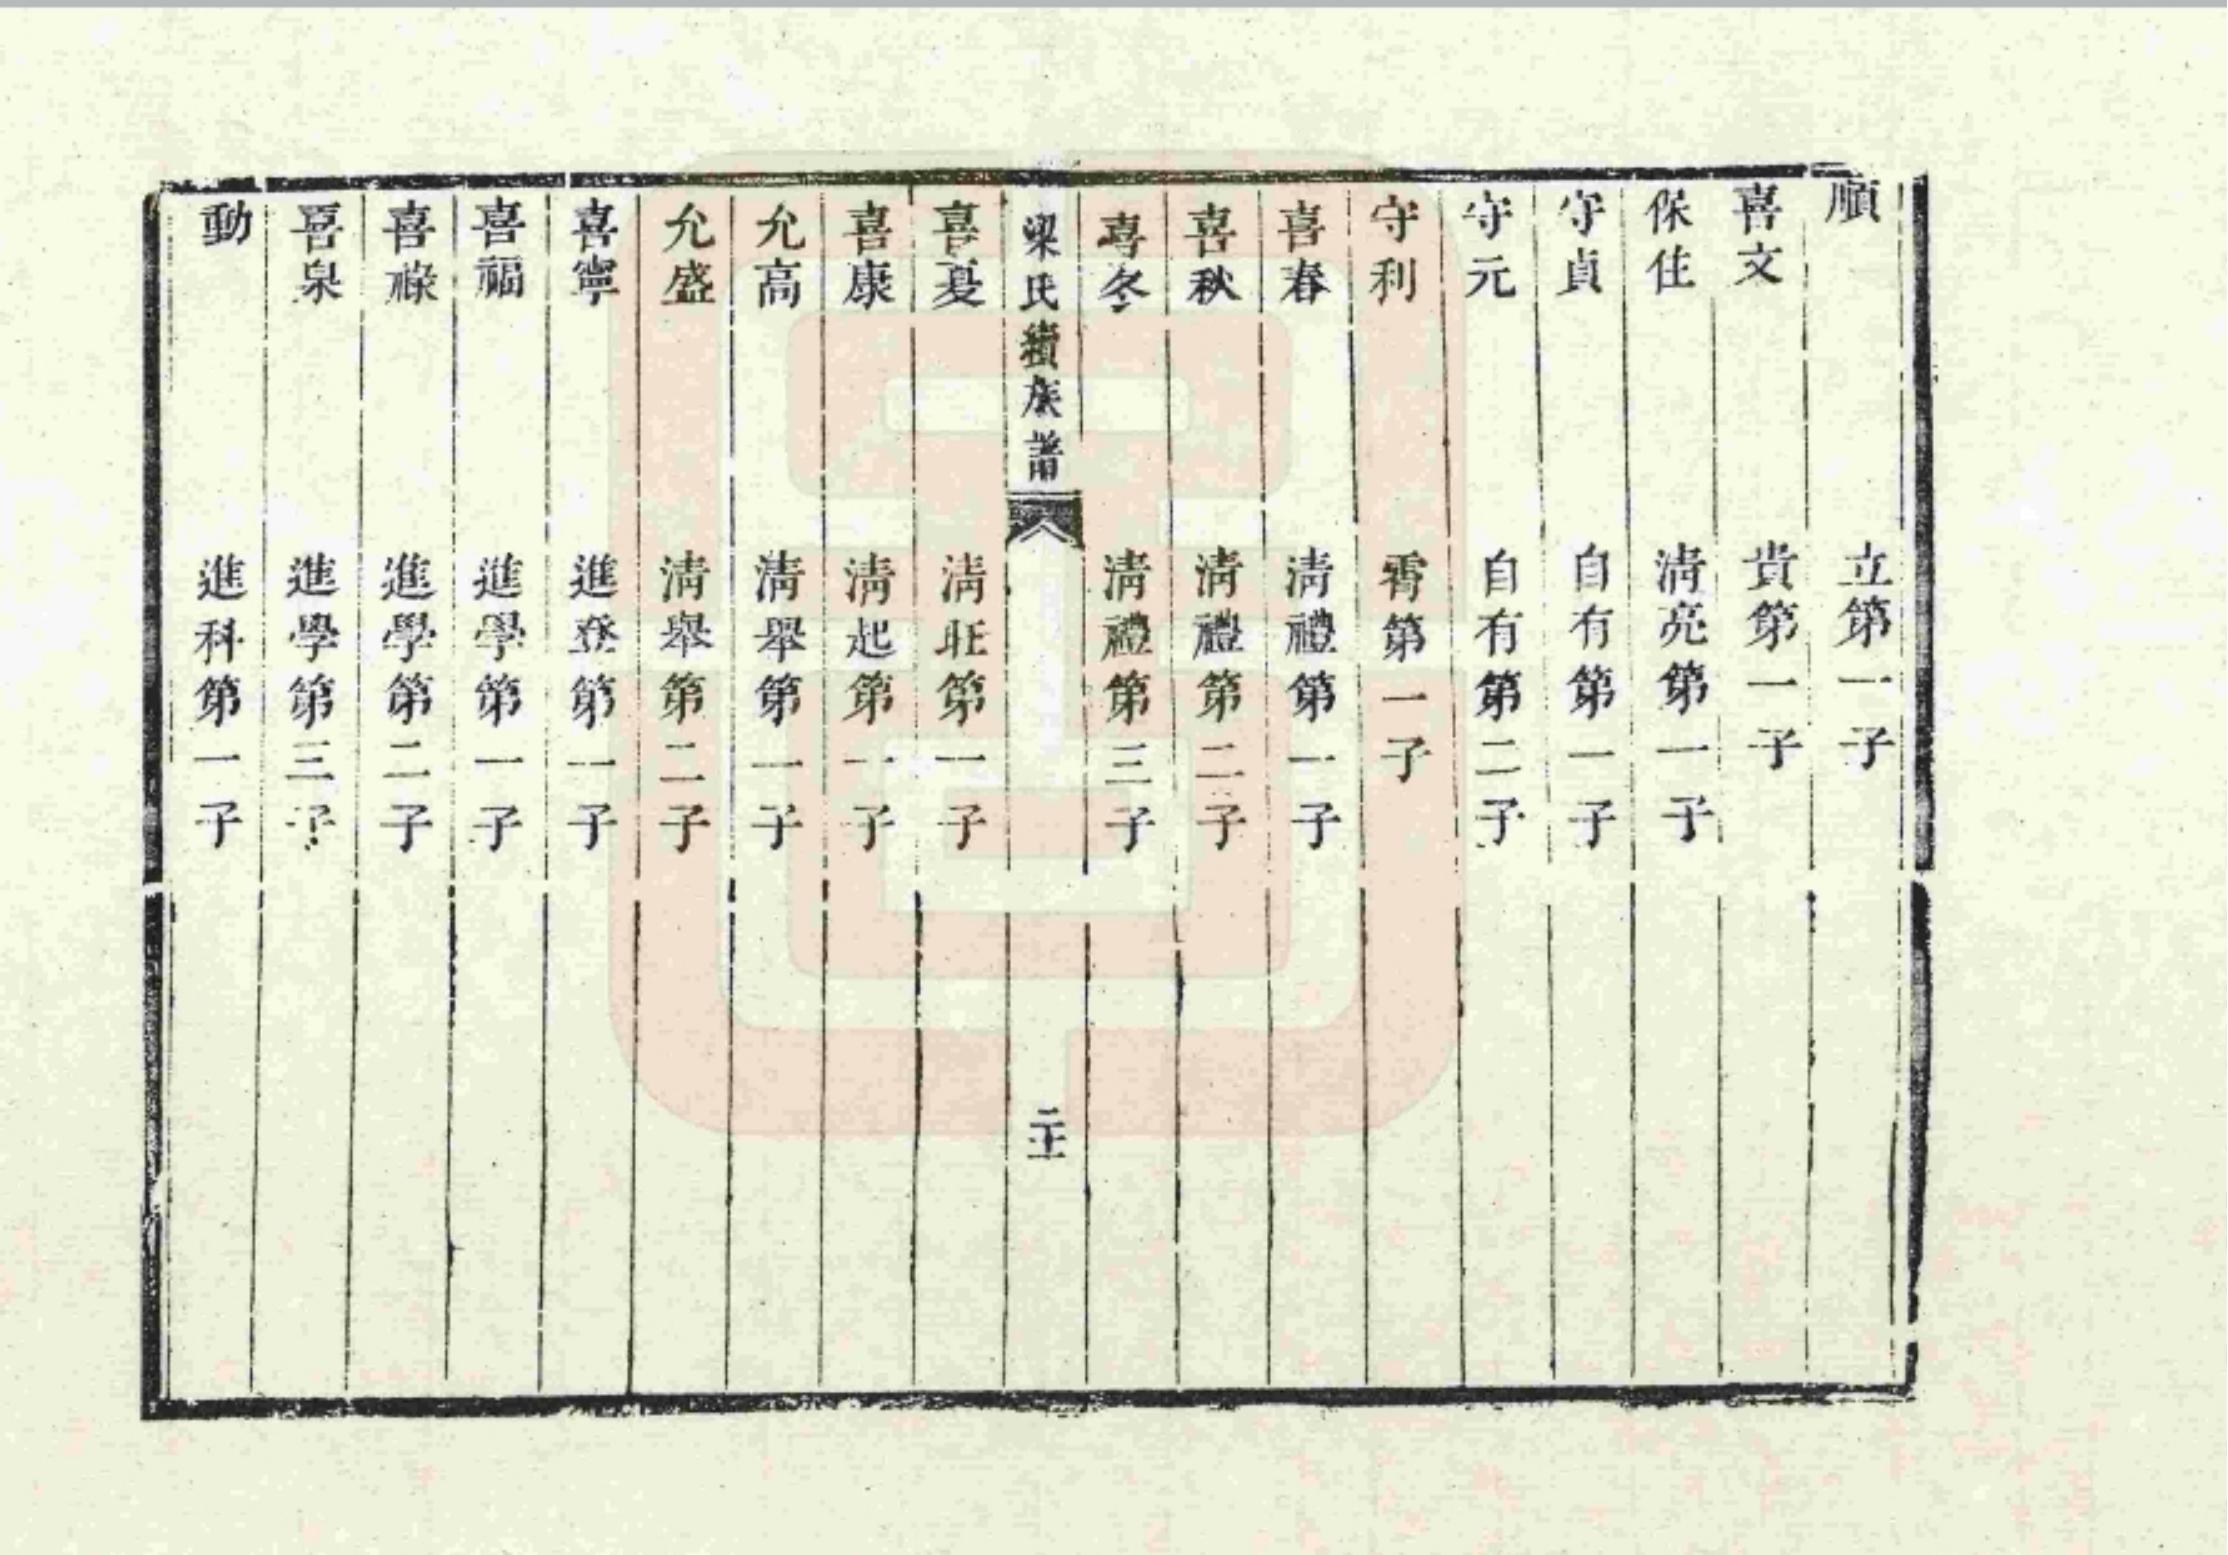 順 立第一子
喜文 貴第一子
保住 淸亮第一子
守貞 自有第一子
守元 自有第二子
守利 霄第一子
喜春 淸禮第一子
喜秋 淸禮第二子
喜冬 淸禮第三子
梁氏續族譜 二十
喜夏 淸旺第一子
喜康 淸起第一子
允高 淸舉第一子
允盛 淸舉第二子
喜寧 進登第一子
喜福 進學第一子
喜祿 進學第二子
喜泉 進學第三子
動 進科第一子